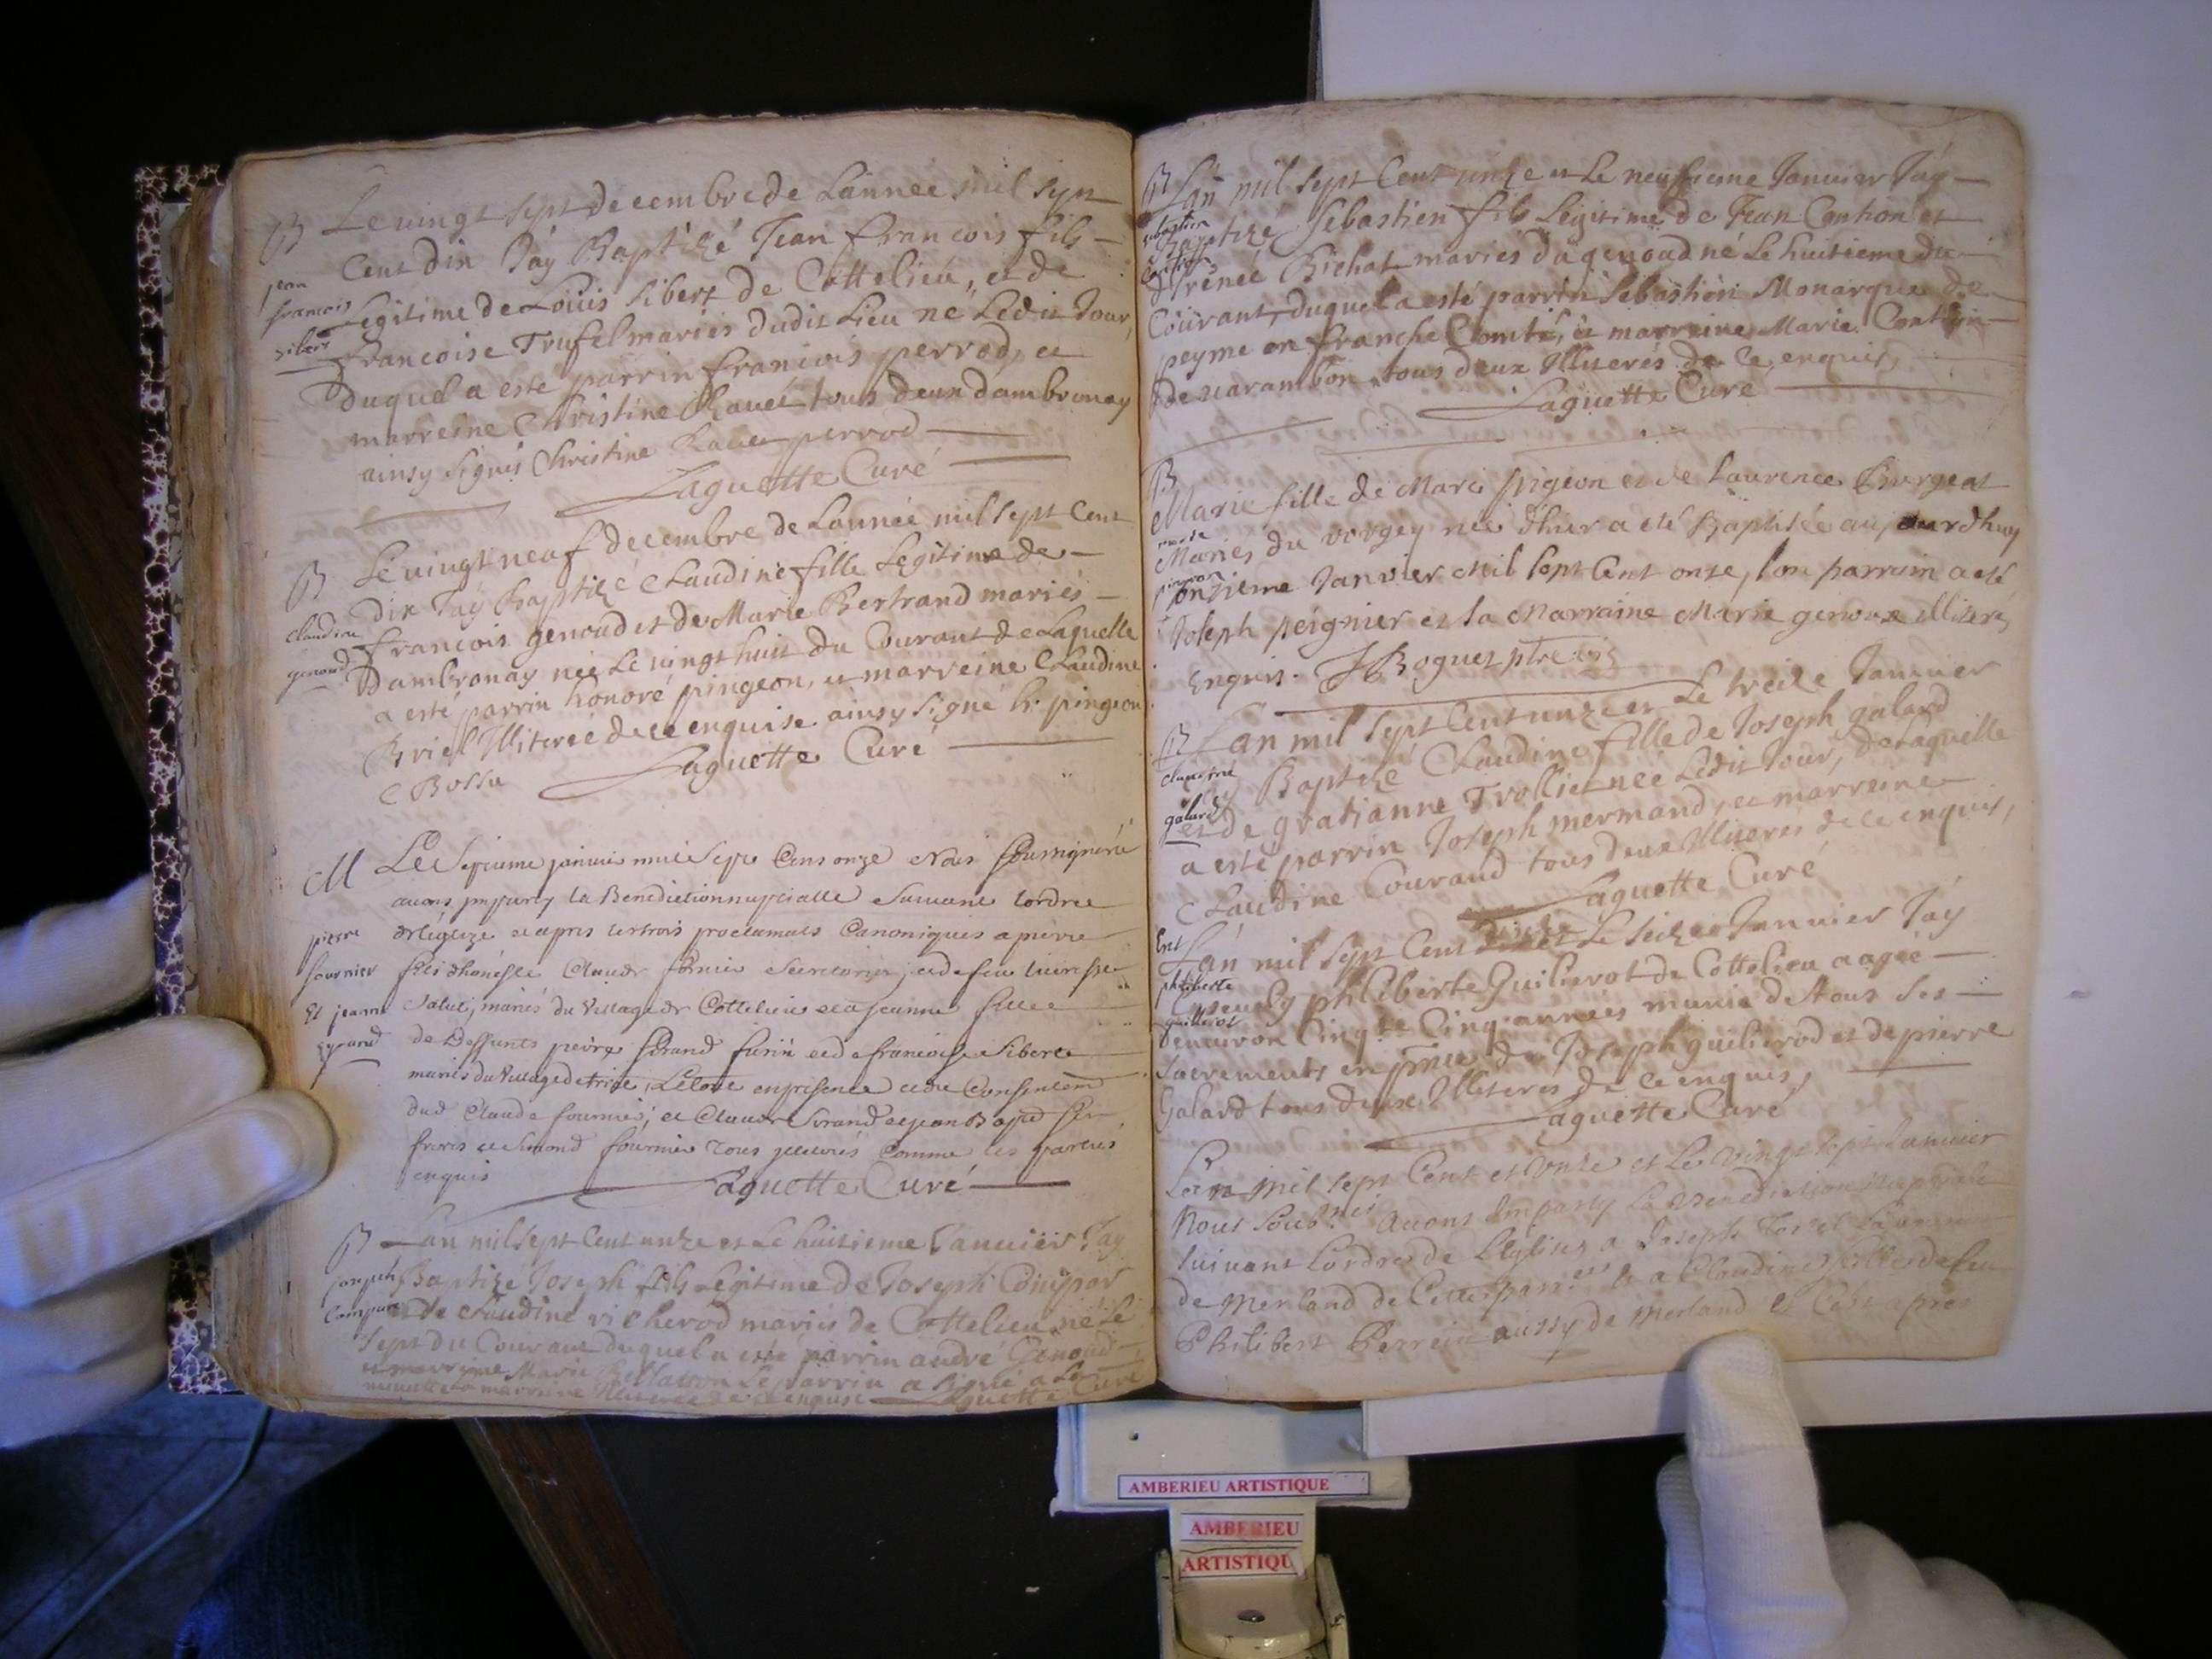 B Le vingt sept decembre de Lannee mil sept
Cent dix Jáy Baptizé Jean francois fils
jean
francois
sibert
Legitime de Loüis Sibert de Cottelieu, et de
francoise Trufel mariés dudit Lieu né Ledit Jour,
Duquel a esté parrin francois perrod, et
marreine Christine Ravet tous deux dambronay
ainsy signés Christine Ravet perrod
Laguette Curé
B Le vingt neuf decembre de Lannée mil sept Cent
dix Jáy Baptizé Claudine fille Legitime de
claudine
genoud
francois genoud et de Marie Bertrand mariés
Dambronay née Le vingt huit du Courant de Laquelle
a esté parrin honoré pingeon, et marreine Claudine
Briel Illiterée de ce enquise ainsy signé h. pingeon
C Bossu Laguette Curé
M Le septieme janvier mil sept Cens onze Nous soussigné
avons imparty la Benediction nuptialle suivant lordre
pierre
fournier
Et jeanne
de léglize et apres les trois proclamats Canoniques a pierre
fils dhoneste Claude fornier et de feu
mariés du village de Cottelieu et a jeanne fille
de Deffunts et de francoise Sibert
mariés du village de Le tout en presence et du Consentem
dud Claude fournier, et Claude et jean Bapt
freres et fournier tous Comme les parties
enquis Laguette Curé
B Lan mil sept Cent unze et Le huitieme Januier Jay
joseph
Compar
Baptizé Joseph fils Legitime de Joseph Compar
et de Claudine richerod mariés de Cottelieu né Le
sept du Courant duquel a esté parrin andré Genoud
et marreine Marie Le parrin a signé a La
minutte La marreine Illiterée de ce enquise Laguette Curé
B Lan mil sept Cent unze et Le neufieme Januier Jáy
sebastien
Baptizé Sebastien fils Legitime de Jean Conthon et
d'Irénée Bichat mariés dagenoud né Le huitieme du
Courant, duquel a esté parrin Sebastien Monarque de
peyme en franche Comté, et marreine Marie Conthon
de varambon, tous deux Illiterés de ce enquis,
Laguette Curé
B
Marie fille de Marc pigeon et de Laurence Burgeat
marie
pingeon
Mariés du vorgey née d'hier a eté Baptisée aujourdhuy
onzieme Janvier Mil sept Cent onze, son parrain a eté
Joseph peignier et la Marraine Marie genoux illiterés
Enquis. J Boguet ptre vic
B Lan mil sept Cent unze et Le treize Januier
claudine
galard
Jáy Baptizé Claudine fille de Joseph galard
et de gratianne Trolliet née Ledit Jour, de Laquelle
a esté parrin Joseph mermand, et marreine
Claudine Courand tous deux Illiterés de ce enquis,
Laguette Curé
Ent
philiberte
guillerot
Lán mil sept Cent unze et Le seize Januier Jáy
Enseuely philiberte Guillerot de Cottelieu aagée
denuiron Cinq te Cinq années munie de tous ses
sacrements en pnce de Joseph guillerod et de pierre
Galard tous deux Illiterés de ce enquis,
Laguette Curé
Lan mil sept Cent et Unze et Le vingt sept Januier
Nous soub.nés Auons Imparty La Benediction Nuptiale
suiuant Lordre de LEglise a Joseph
de Merland de Cette parr.sse et a Claudine fille de feu
Philibert Perrein aussy de Merland Et Cest apres
AMBERIEU ARTISTIQUE
AMBERIEU
ARTISTIQU